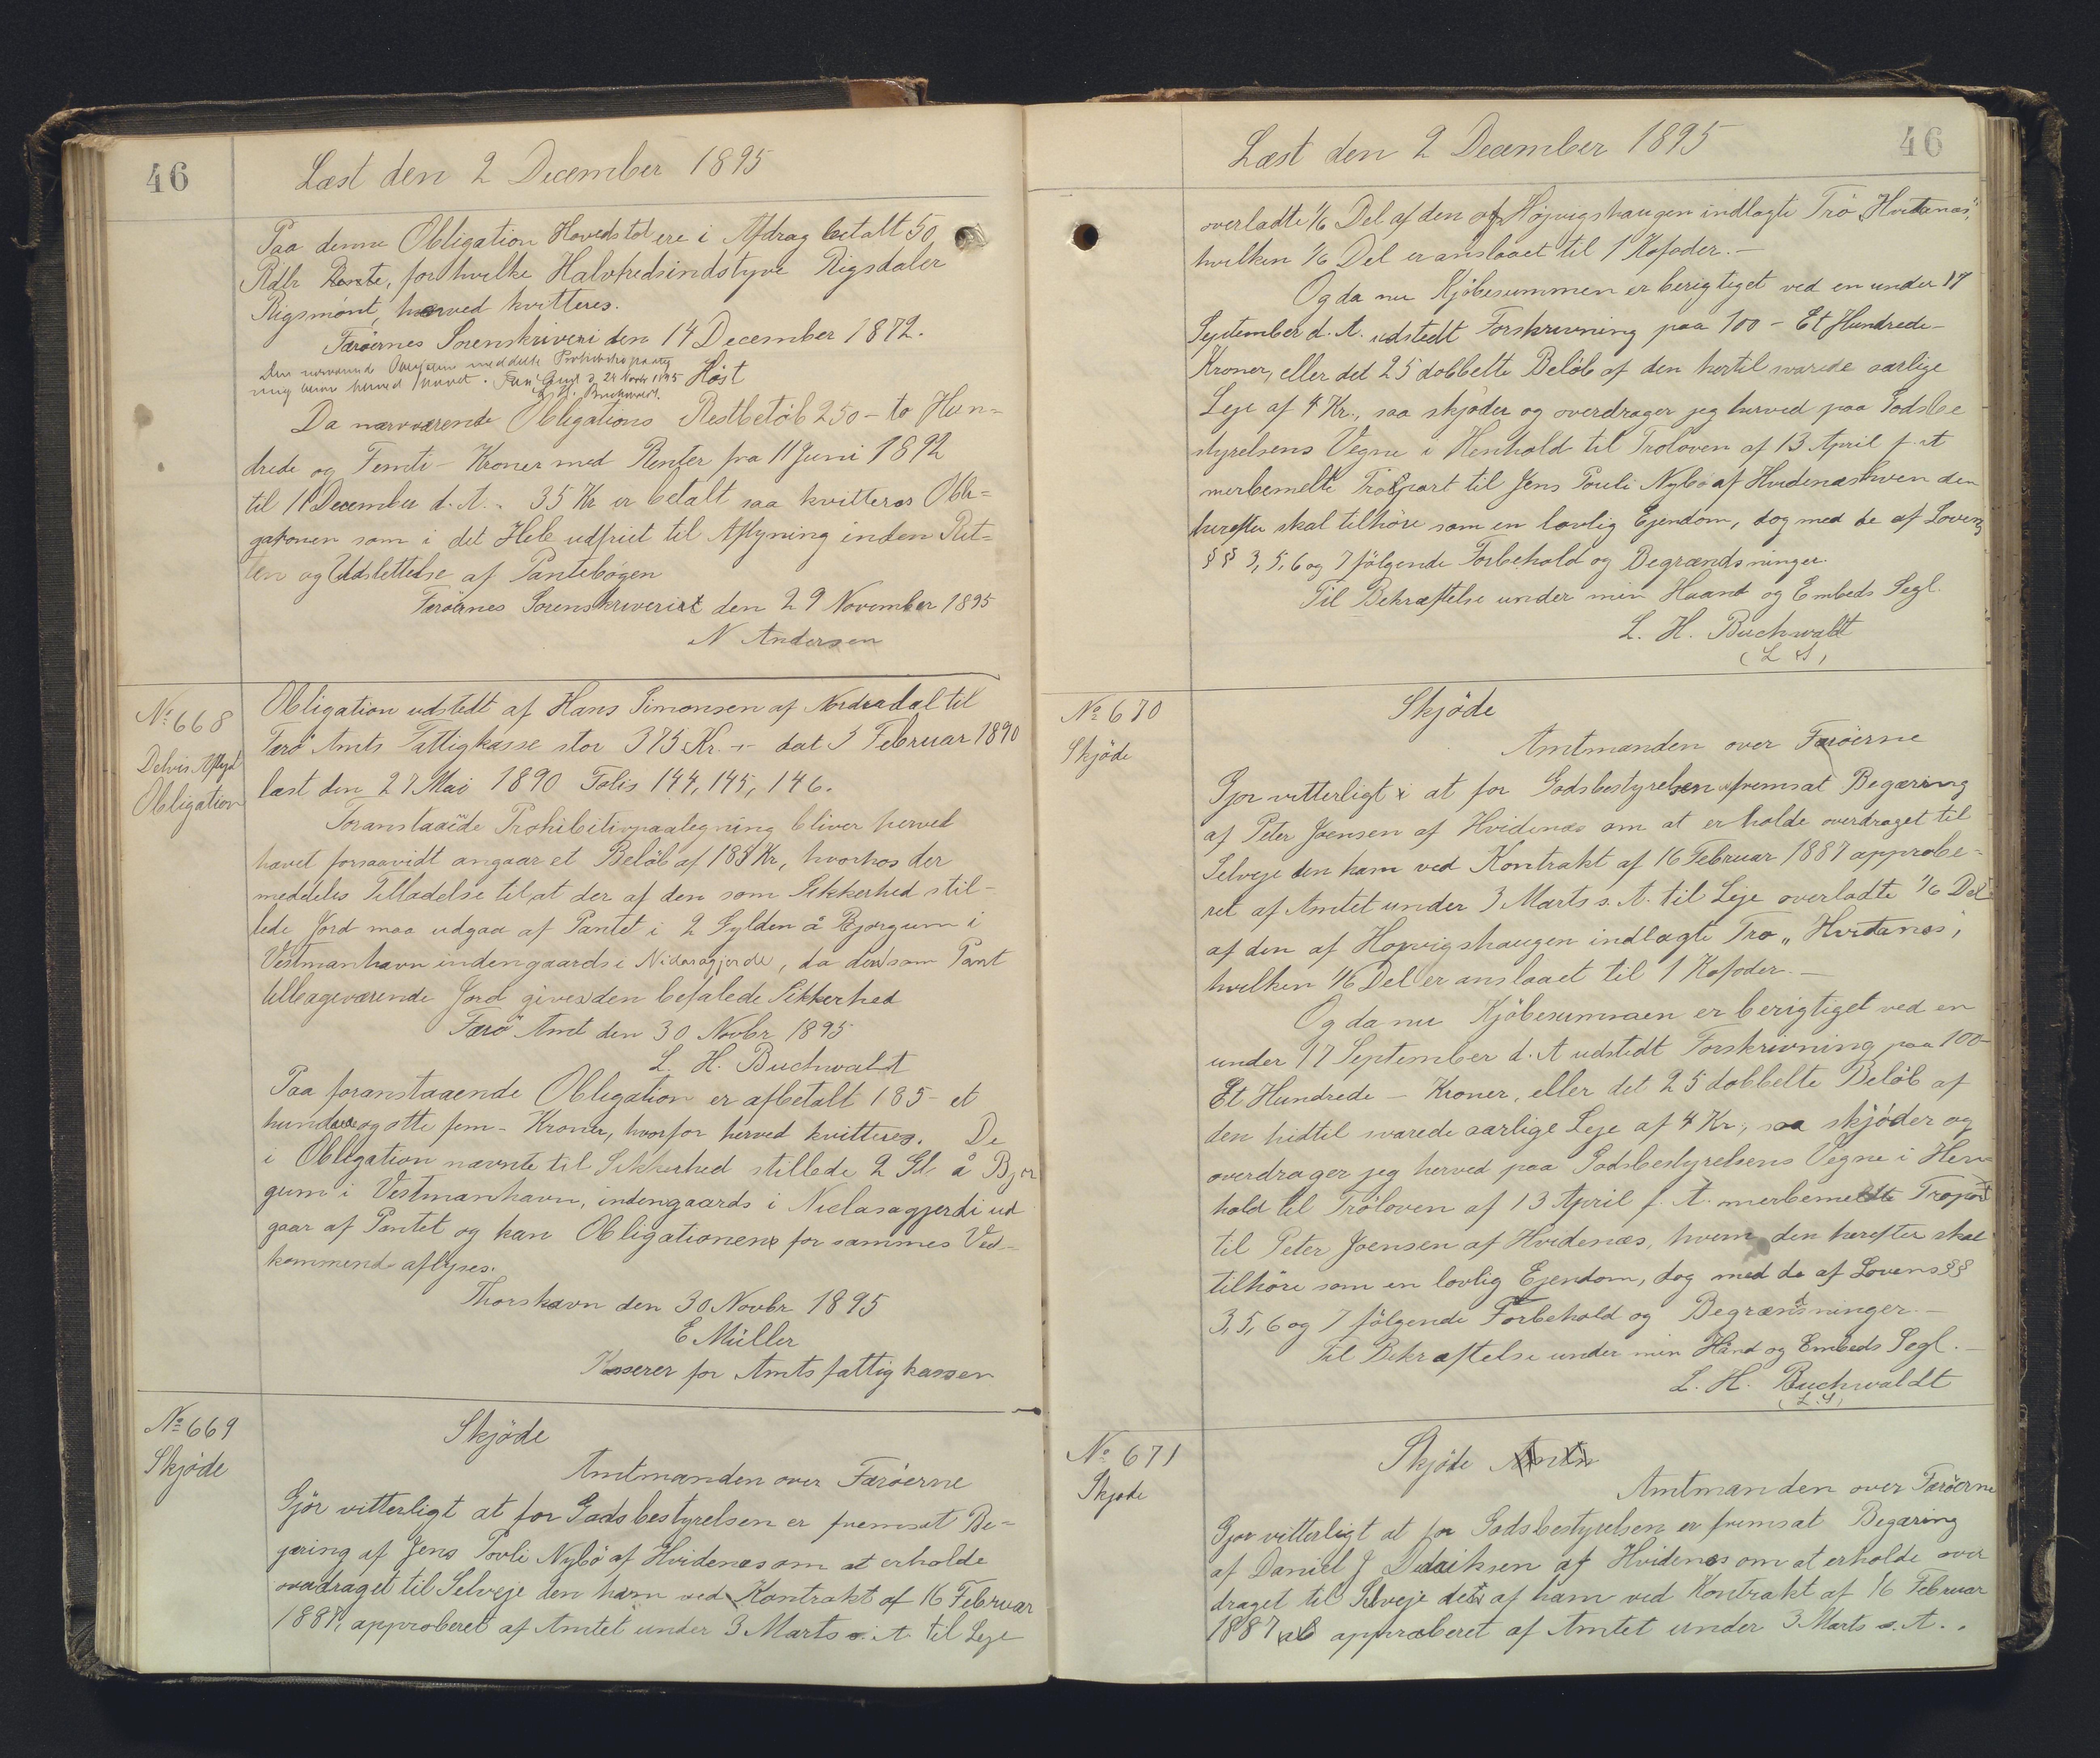 46
Læst den 2 December 1895
Paa denne Obligation Hovedstol ere i Afdrag betalt 50
Rdlr Rente, for hvilke Halvtredsindstyve Rigsdaler
Rigsmønt, herved kvitteres.
Færøernes Sorenskriveri den 14 December 1872.
Høst
Den nærværende Obligation meddelte Prohibitivpaateg
ning bliver herved hævet. Færø Amt d. 29 Novbr 1895
L. H. Buchwaldt.
Da nærværende Obligations Restbeløb 250 - to Hun-
drede og Femti - Kroner med Renter fra 11 Juni 1892
til 11 December d. A. 35 Kr er betalt saa kvitteres Obli=
gationen som i det Hele udfriet til Aflysning inden Ret=
ten og Udslettelse af Pantebogen
Færøernes Sorenskriveri den 29 November 1895
N Andersen
No 668
Delvis Aflyst
Obligation
Obligation udstedt af Hans Simonsen af Nordredal til
Færø Amts Fattigkasse stor 375 Kr. dat 3 Februar 1890
læst den 27 Mai 1890 Folis 144, 145, 146.
Foranstaaede Prohibitivpaategning bliver herved
hævet forsaavidt angaar et Beløb af 185 Kr, hvorhos der
meddeles Tilladelse til, at der af den som Sikkerhed stil-
lede Jord maa udgaa af Pantet i 2 Gylden å Bjorgum i
Vestmanhavn indengaards i Nidaragjerde, da den som Pant
tilbageværende Jord gives den befalede Sikkerhed
Færø Amt den 30 Novbr 1895
L. H. Buchwaldt
Paa foranstaaende Obligation er afbetalt 185 - et
hundrede og otte fem - Kroner, hvorfor herved kvitteres. De
i Obligation nævnte til Sikkerhed stillede 2 Gl. å Bjor
gum i Vestmanhavn, indengaards i Niclasagjerdi ud
gaar af Pantet og kan Obligationen for sammes Ved=
kommend aflyses.
Thorshavn den 30 Novbr 1895
E Müller
Kasserer for Amtsfattigkassen
No 669
Skjöde
Skjöde
Amtmanden over Færöerne
Gjör vitterligt at for Godsbestyrelsen er fremsat Be=
gæring af Jens Povli Nybö af Hvidenæs om at erholde
overdraget til Selveje den ham ved Kontrakt af 16 Februar
1887, approberet af Amtet under 3 Marts s. A. til Leje
46
Læst den 2 December 1895
overladte 1/6 Del af den af Højvigshaugen indlagte Trö "Hvitanæs",
hvilken 1/6 Del er anslaaet til 1 Kofoder. -
Og da nu Kjöbesummen er berigtiget ved en under 17
September d. A. udstedt Forskrivning paa 100 - Et Hundrede -
Kroner, eller det 25 dobbelte Beløb af den hertil svarede aarlige
Leje af 4 Kr., saa skjøder og overdrager jeg herved paa Godsbe
styrelsens Vegne i Henhold til Troloven af 13 April f. A
merbemeldte Tröpart til Jens Pouli Nybø af Hvidenæs hvem den
herefter skal tilhöre som en lovlig Ejendom, dog med de af Lovens
§§ 3, 5, 6 og 7 følgende Forbehold og Begrændsninger.
Til Bekræftelse under min Haand og Embeds Segl.
L. H. Buchwaldt
(L S)
No 670
Skjöde
Skjöde
Amtmanden over Færöerne
Gjor vitterligt at for Godsbestyrelsen er fremsat Begæring
af Peter Joensen af Hvidenæs om at erholde overdraget til
Selveje den ham ved Kontrakt af 16 Februar 1887 approbe-
ret af Amtet under 3 Marts s. A. til Leje overladte 1/6 Del
af den af Hojvigshaugen indlagte Tro "Hvitanæs",
hvilken 1/6 Del er anslaaet til 1 Kofoder. -
Og da nu Kjöbesummen er berigtiget ved en
under 17 September d. A udstedt Forskrivning paa 100 -
Et Hundrede - Kroner, eller det 25 dobbelte Beløb af
den hidtil svarede aarlige Leje af 4 Kr, saa skjøder og
overdrager jeg herved paa Godsbestyrelsens Vegne i Hen
hold til Tröloven af 13 April f. A. merbemeldte Tropart
til Peter Joensen af Hvidenæs, hvem den herefter skal
tilhöre som en lovlig Ejendom, dog med de af Lovens §§
3, 5, 6 og 7 følgende Forbehold og Begrændsninger. -
Til Bekræftelse under min Hånd og Embeds Segl. -
L. H. Buchwaldt
(L. S)
No 671
Skjøde
Skjøde Amtm
Amtmanden over Færöerne
Gjor vitterligt at for Godsbestyrelsen er fremsat Begæring
af Daniel J Didriksen af Hvidenæs om at erholde over
draget til Selveje det af ham ved Kontrakt af 16 Februar
1887 approberet af Amtet under 3 Marts s. A.